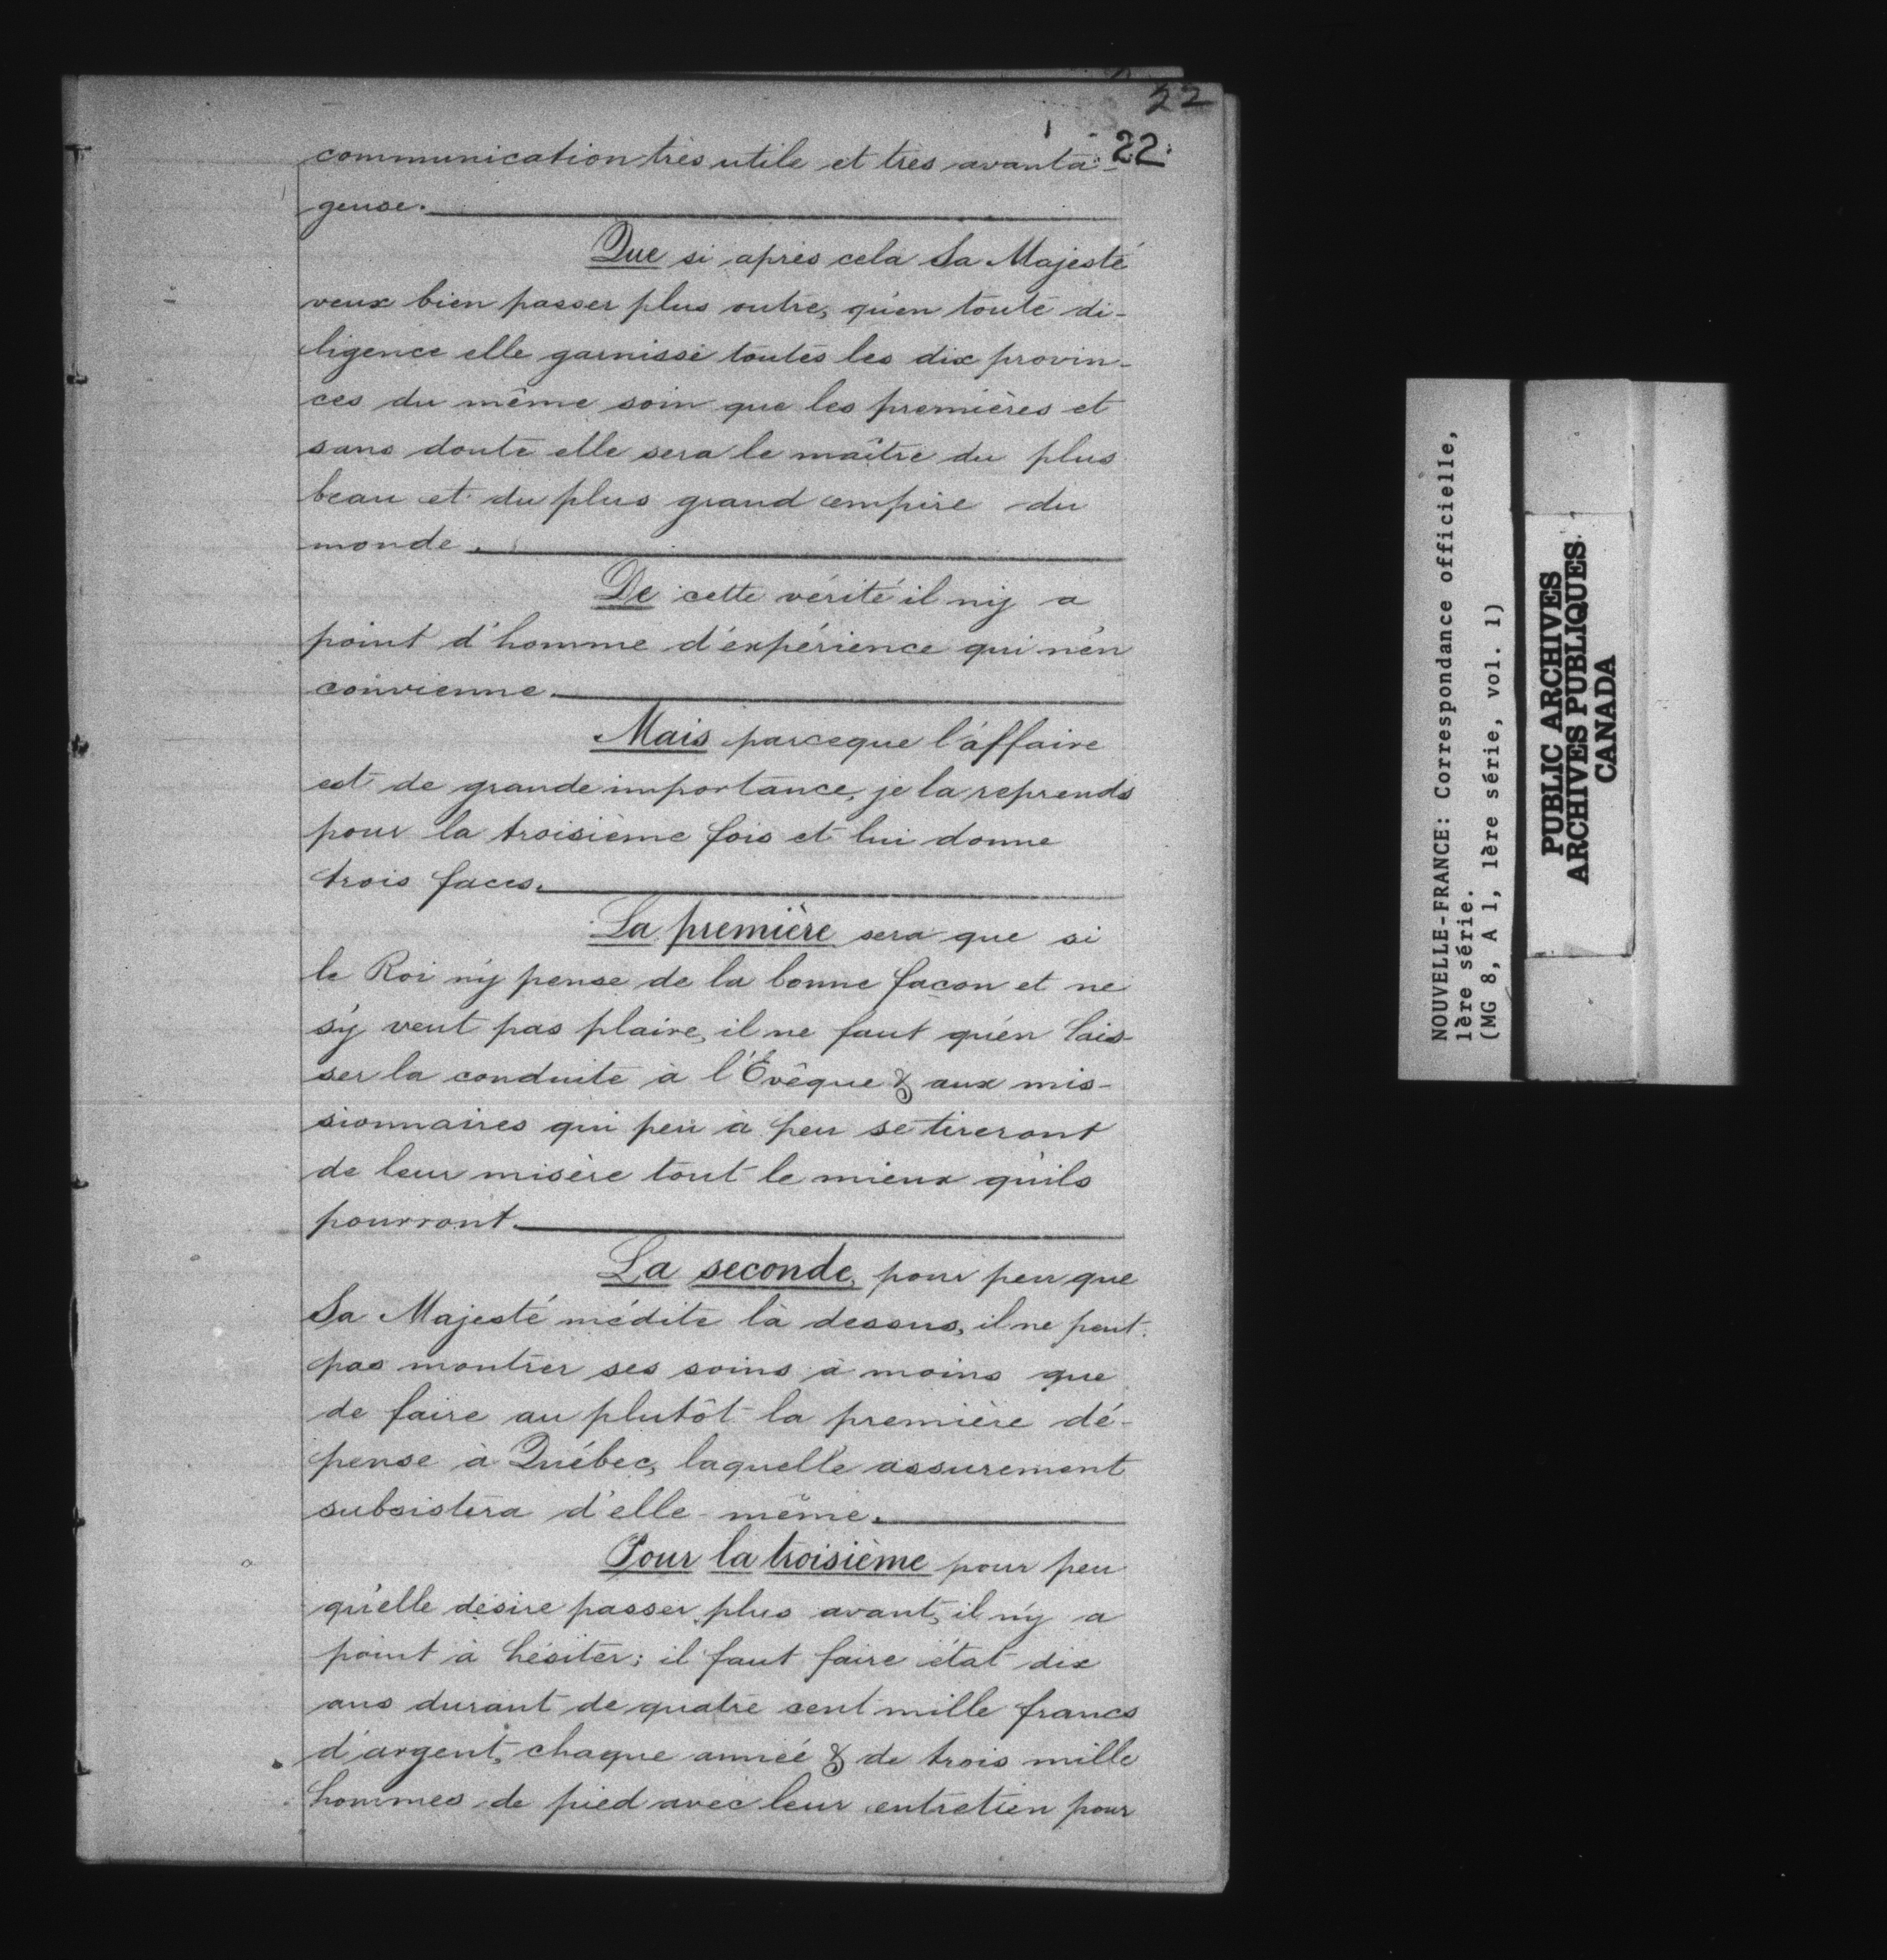 22
22
communication très utile et très avanta-
geuse.
Que si après cela Sa Majesté
veux bien passer plus outre, qu'en toute di-
ligence elle garnisse toutes les dix provin-
ces du même soin que les premières et
sans doute elle sera le maître du plus
beau et du plus grand empire du
monde.
De cette vérité il n'y a
point d'homme d'expérience qui n'en
convienne.
Mais parceque l'affaire
est de grande importance, je la reprends
pour la troisième fois et lui donne
trois faces.
La première sera que si
le Roi n'y pense de la bonne façon et ne
s'y veut pas plaire, il ne faut qu'en lais-
ser la conduite à l'Évêque & aux mis-
sionnaires qui peu à peu se tireront
de leur misère tout le mieux qu'ils
pourront.
La seconde, pour peu que
Sa Majesté médite là dessus, il ne peut
pas montrer ses soins à moins que
de faire au plutôt la première dé-
pense à Québec, laquelle assurement
subsistera d'elle-même.
Pour la troisième pour peu
qu'elle désire passer plus avant, il n'y a
point à hésiter; il faut faire état dix
ans durant de quatre cent mille francs
d'argent, chaque année & de trois mille
hommes de pied avec leur entretien pour
NOUVELLE-FRANCE: Correspondance officielle,
1ère série.
(MG 8, A 1, 1ère série, vol. 1)
PUBLIC ARCHIVES
ARCHIVES PUBLIQUES
CANADA